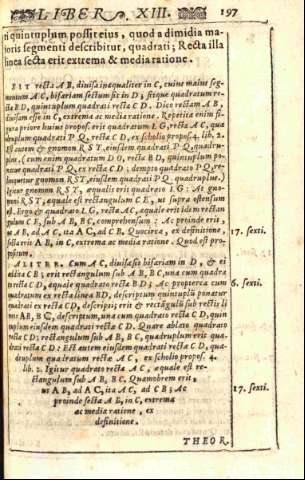 LIBER XIII. 197
ti quintuplum possit eius, quod a dimidia ma-
ioris segmenti describitur, quadrati; Recta illa
linea secta erit extrema & media ratione.
SIT recta AB, divisa inæqualiter in C, cuius maius seg-
mentum AC, bifariam sectum sit in D; sitque quadratum re-
ctæ BD, quintuplum quadrati rectæ CD. Dico rectam AB,
divisam esse in C, extrema ac media ratione. Repetita enim fi-
gura prioris huius propos. erit quadratum LG, rectæ AC, qua
druplum quadrati PQ, rectæ CD, ex scholio propos. 4. lib. 2.
Est autem & gnomon RST, eiusdem quadrati PQ, quadru-
plus. (cum enim quadratum DO, rectæ BD, quintuplum po-
natur quadrati PQ, ex recta CD; dempto quadrato PQ, re-
linquetur gnomon RST, eiusdem quadrati PQ quadruplus.)
Igitur gnomon RST, æqualis erit quadrato LG: At gno-
moni RST, æquale est rectangulum CE, ut supra ostensum
est. Ergo & quadrato LG, rectæ AC, æquale erit idem rectan
gulum CE, sub AB, BC, comprehensum; Ac proinde erit,
ut AB, ad AC, ita AC, ad CB. Quocirca, ex definitione, 17. sexti.
secta erit AB, in C, extrema ac media ratione. Quod est pro-
positum.
ALITER. Cum AC, divisa sit bifariam in D, & ei
addita CB; erit rectangulum sub AB, BC, una cum quadra
rectæ CD, æquale quadrato rectæ BD; Ac propterea cum 6. sexti.
quadratum ex recta linea BD, descriptum quintuplū ponatur
quadrati ex recta CD, descripti; erit & rectāgulū sub rectis li
neis AB, BC, descriptum, una cum quadrato rectæ CD, quin
tuplum eiusdem quadrati rectæ CD. Quare ablato quadrato
rectæ CD; rectangulum sub AB, BC, quadruplum erit qua-
drati rectæ CD: Est autem eiusdem quadrati rectæ CD, qua-
druplum quadratum rectæ AC, ex scholio propos. 4.
lib. 2. Igitur quadrato rectæ AC, æquale est re-
ctangulum sub AB, BC. Quamobrem erit,
ut AB, ad AC, ita AC, ad CB; Ac 17. sexti.
proinde secta AB, in C, extrema
ac media ratione, ex
definitione.
THEOR.